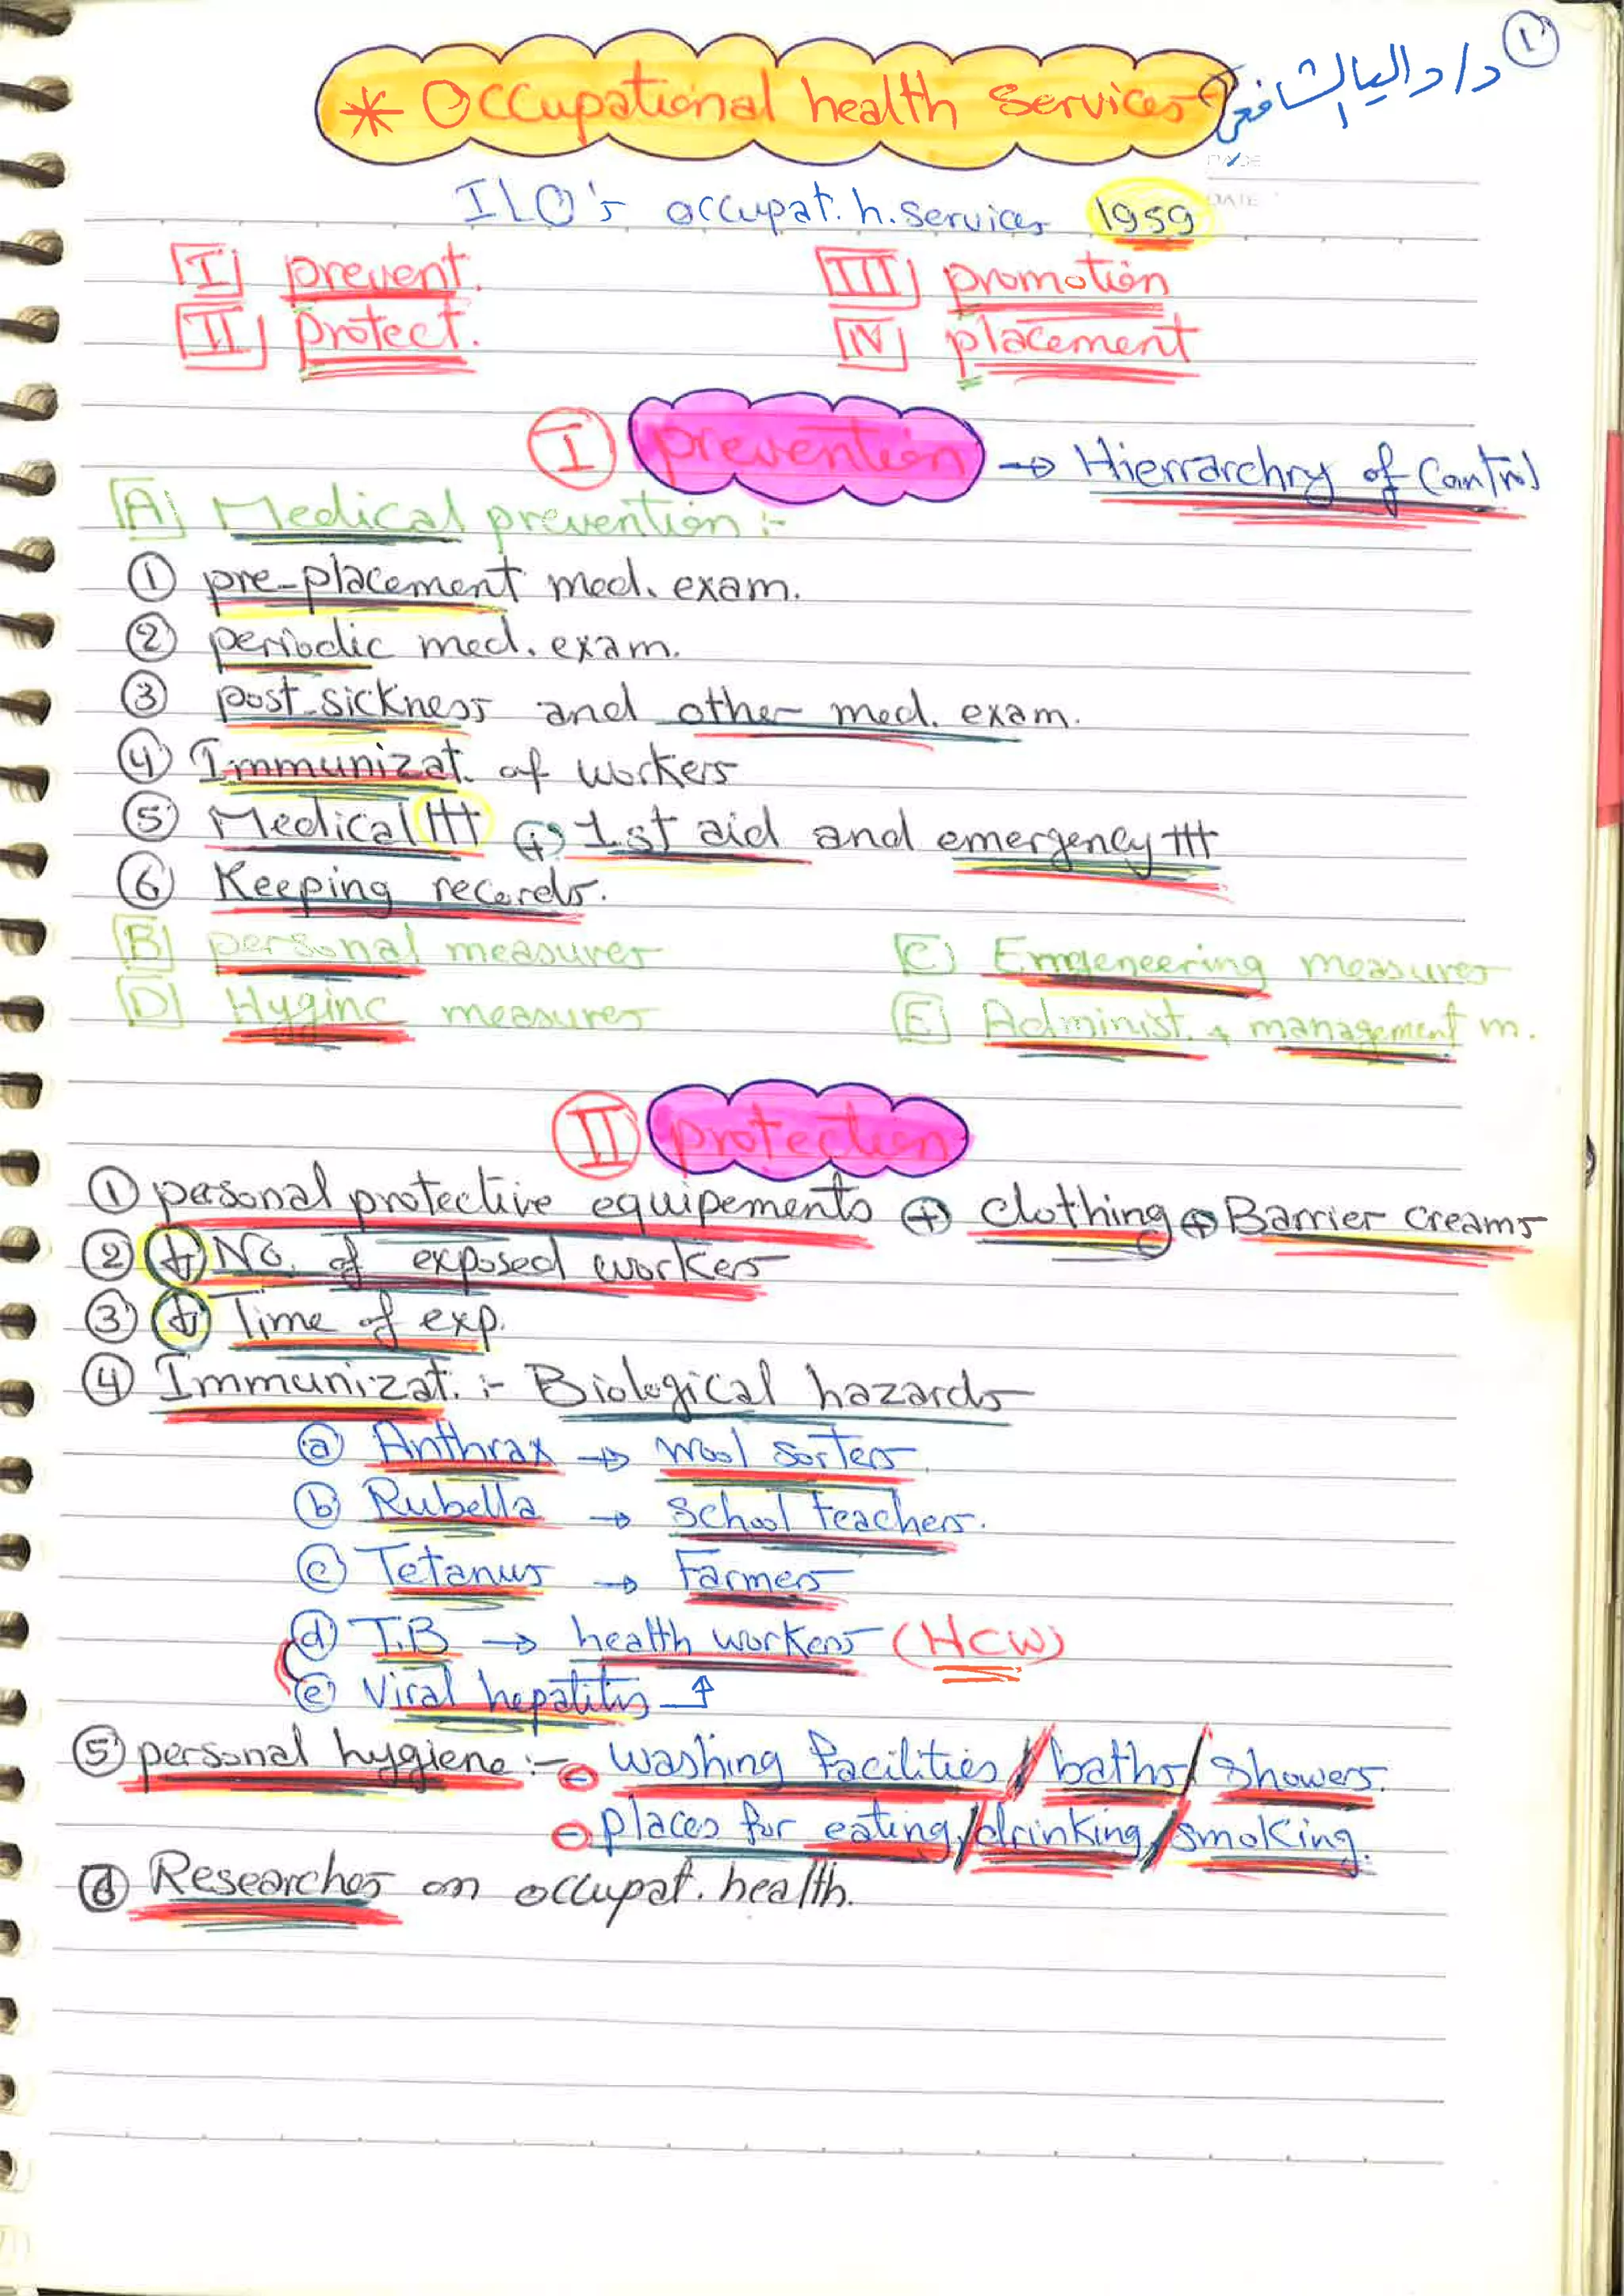 ①
د/ داليا الشافعى
* Occupational health services
PAGE
DATE
ILO's occupat. h. services 1959
I prevent. III promotion
II protect. IV placement
I prevention → Hierrarchry of Control
A Medical prevention :-
① pre-placement med. exam.
② periodic med. exam.
③ post-sickness and other med. exam.
④ Immunizat. of workers
⑤ Medical ttt + 1st aid and emergency ttt
⑥ Keeping records.
B personal measures C Emgeneering measures
D Hyginc measures E Administ. + management m.
II protection
① personal protective equipements + clothing + Barrier creams
② ↓ No. of exposed workers
③ ↓ Time of exp.
④ Immunizat. :- Biological hazards
ⓐ Anthrax → wool sorters.
ⓑ Rubella → school teachers.
ⓒ Tetanus → Farmers
ⓓ T.B → health workers (HCW)
ⓔ Viral hepatitis ↑
⑤ personal hygiene :- - washing facilities / baths / showers.
- places for eating / drinking / smoking.
⑥ Researches on occupat. health.